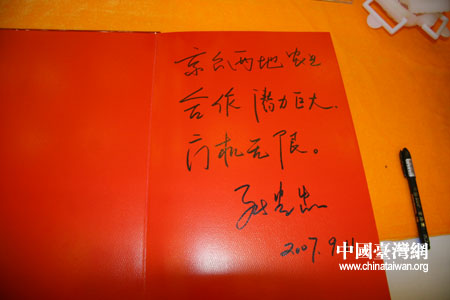 京台两地农业
合作潜力巨大.
商机无限。
2007.9.
中國臺灣網
www.chinataiwan.org